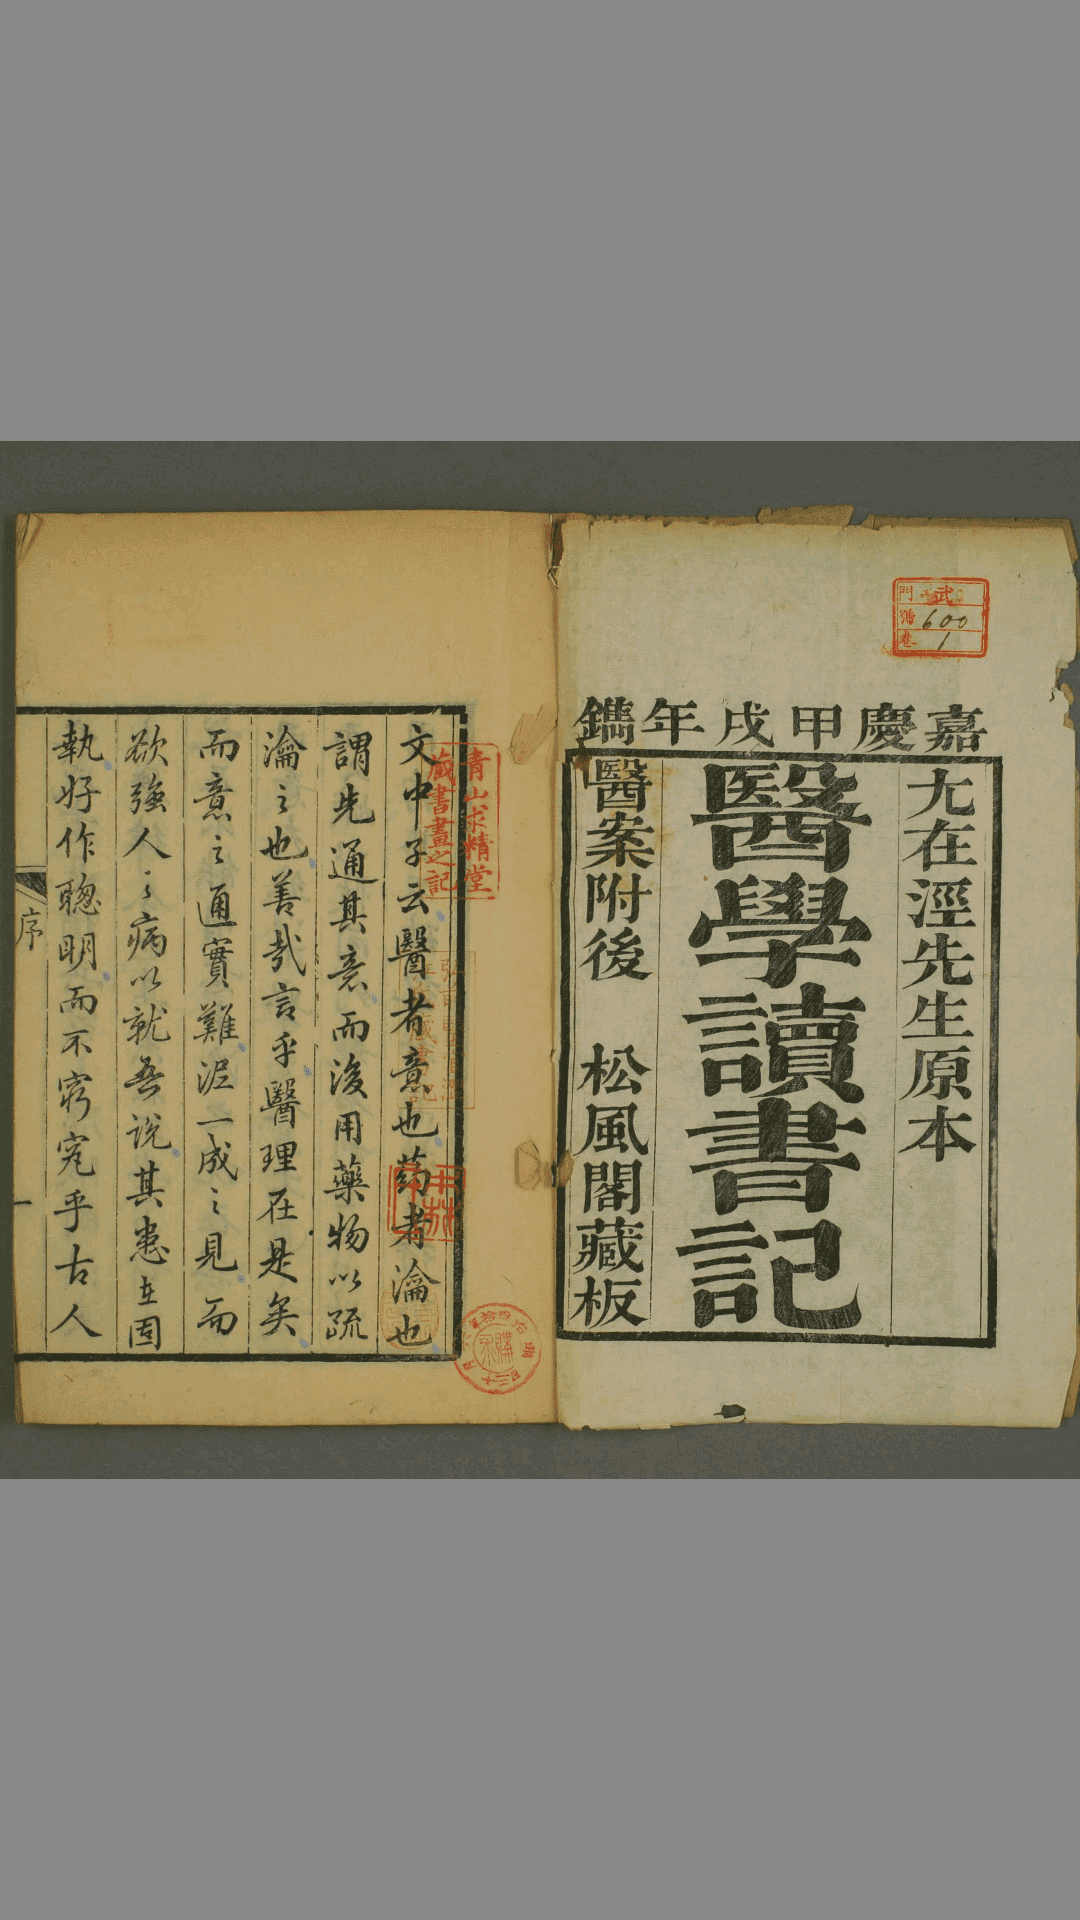 嘉慶甲戌年鐫
尤在涇先生原本
醫學讀書記
醫案附後 松風閣藏板
武
門
號 600
卷 1
文中子云醫者意也药者瀹也
謂先通其意而後用藥物以疏
瀹之也善哉言乎醫理在是矣
而意之通實難泥一成之見而
欲強人之病以就吾说其患在固
執好作聰明而不窮究乎古人
序
一
青山求精堂
藏書畫之記